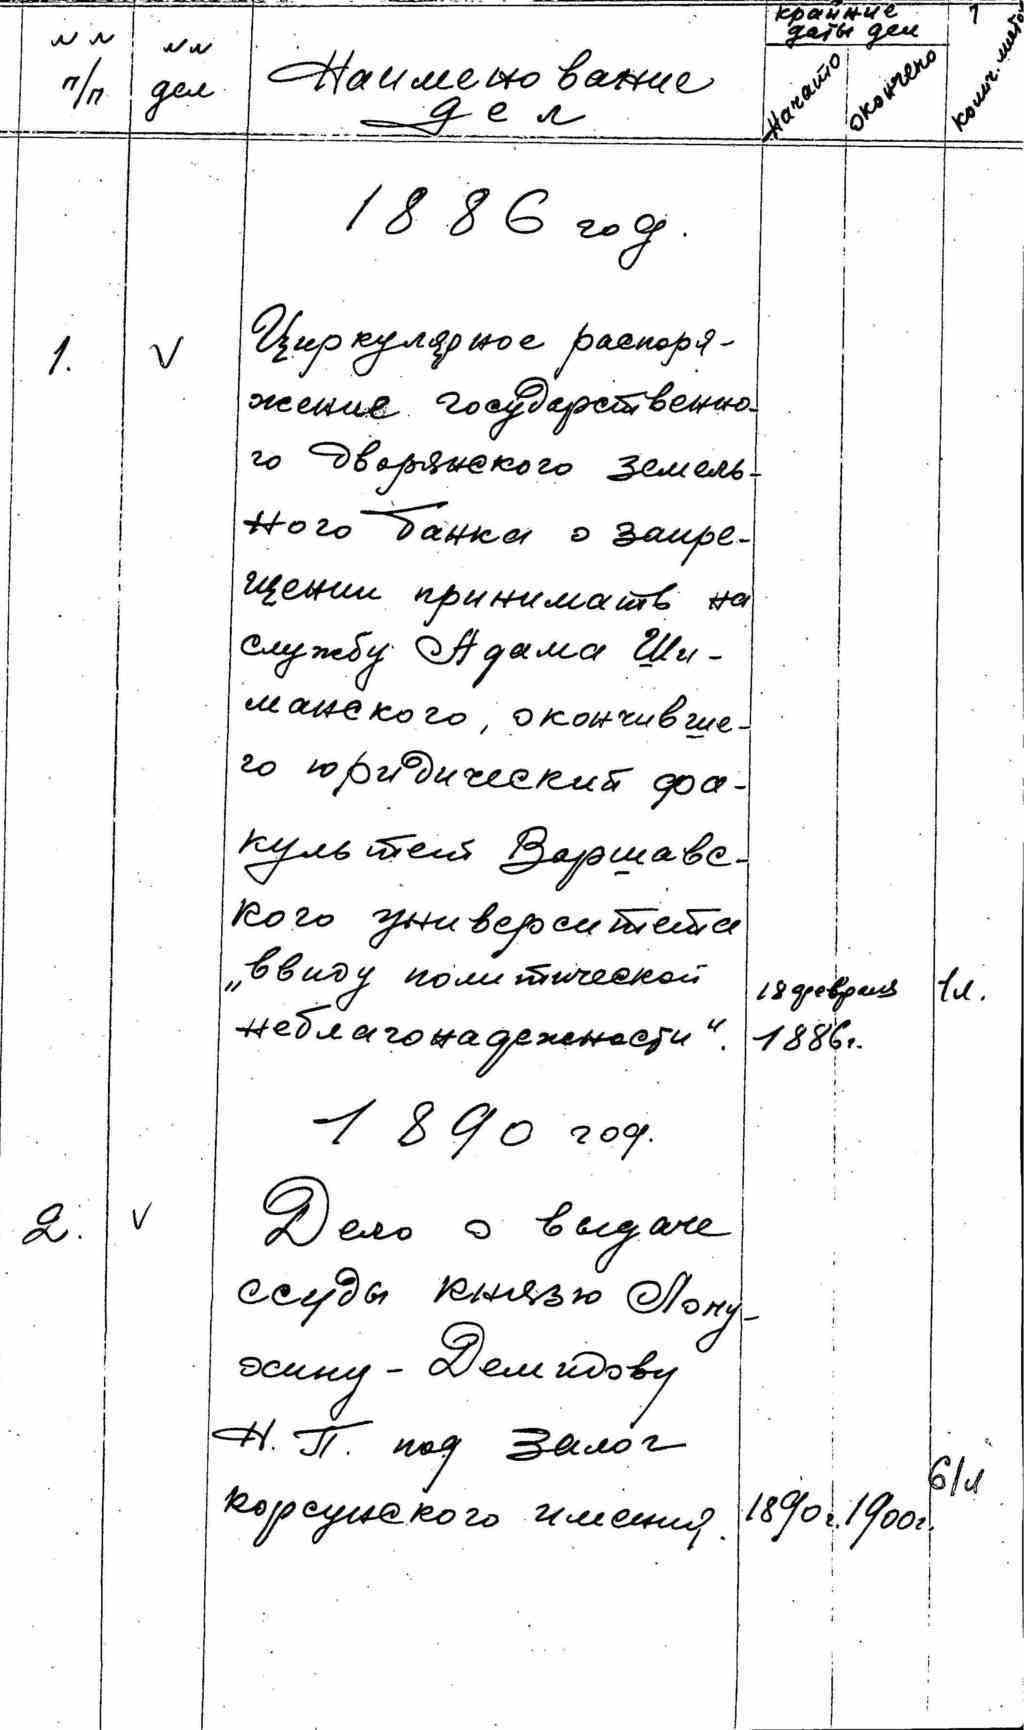 №№ п/п
№№ дел
Наименование
дел
крайние
даты дел
Начато
окончено
колич. листов
1
1886 год.
1.
V
Циркулярное распоря-
жение государственно-
го Дворянского земель-
ного банка о запре-
щении принимать на
службу Адама Ши-
манского, окончивше-
го юридический фа-
культет Варшавс-
кого университета
„ввиду политической
неблагонадежности".
18 февраля
1886г.
1л.
1890 год.
2.
V
Дело о выдаче
ссуды князю Лопу-
хину-Демидову
Н.П. под залог
корсунского имения.
1890г.
1900г.
61л